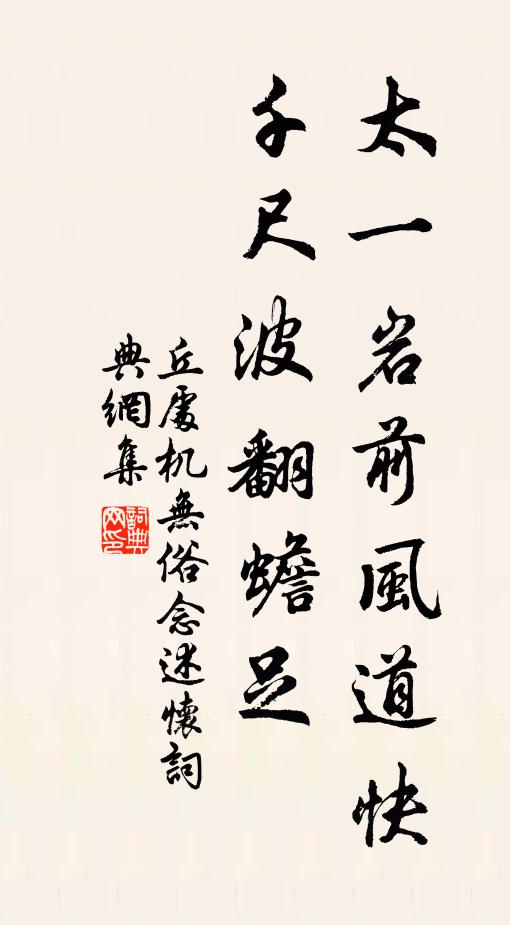 太一岩前風道快
千尺波翻蟾足
丘處机無俗念述懷詞
典網集
詞典网印